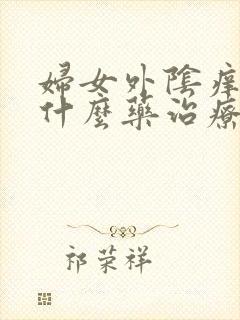 婦女外陰癢
什麼藥治療
祁荣祥